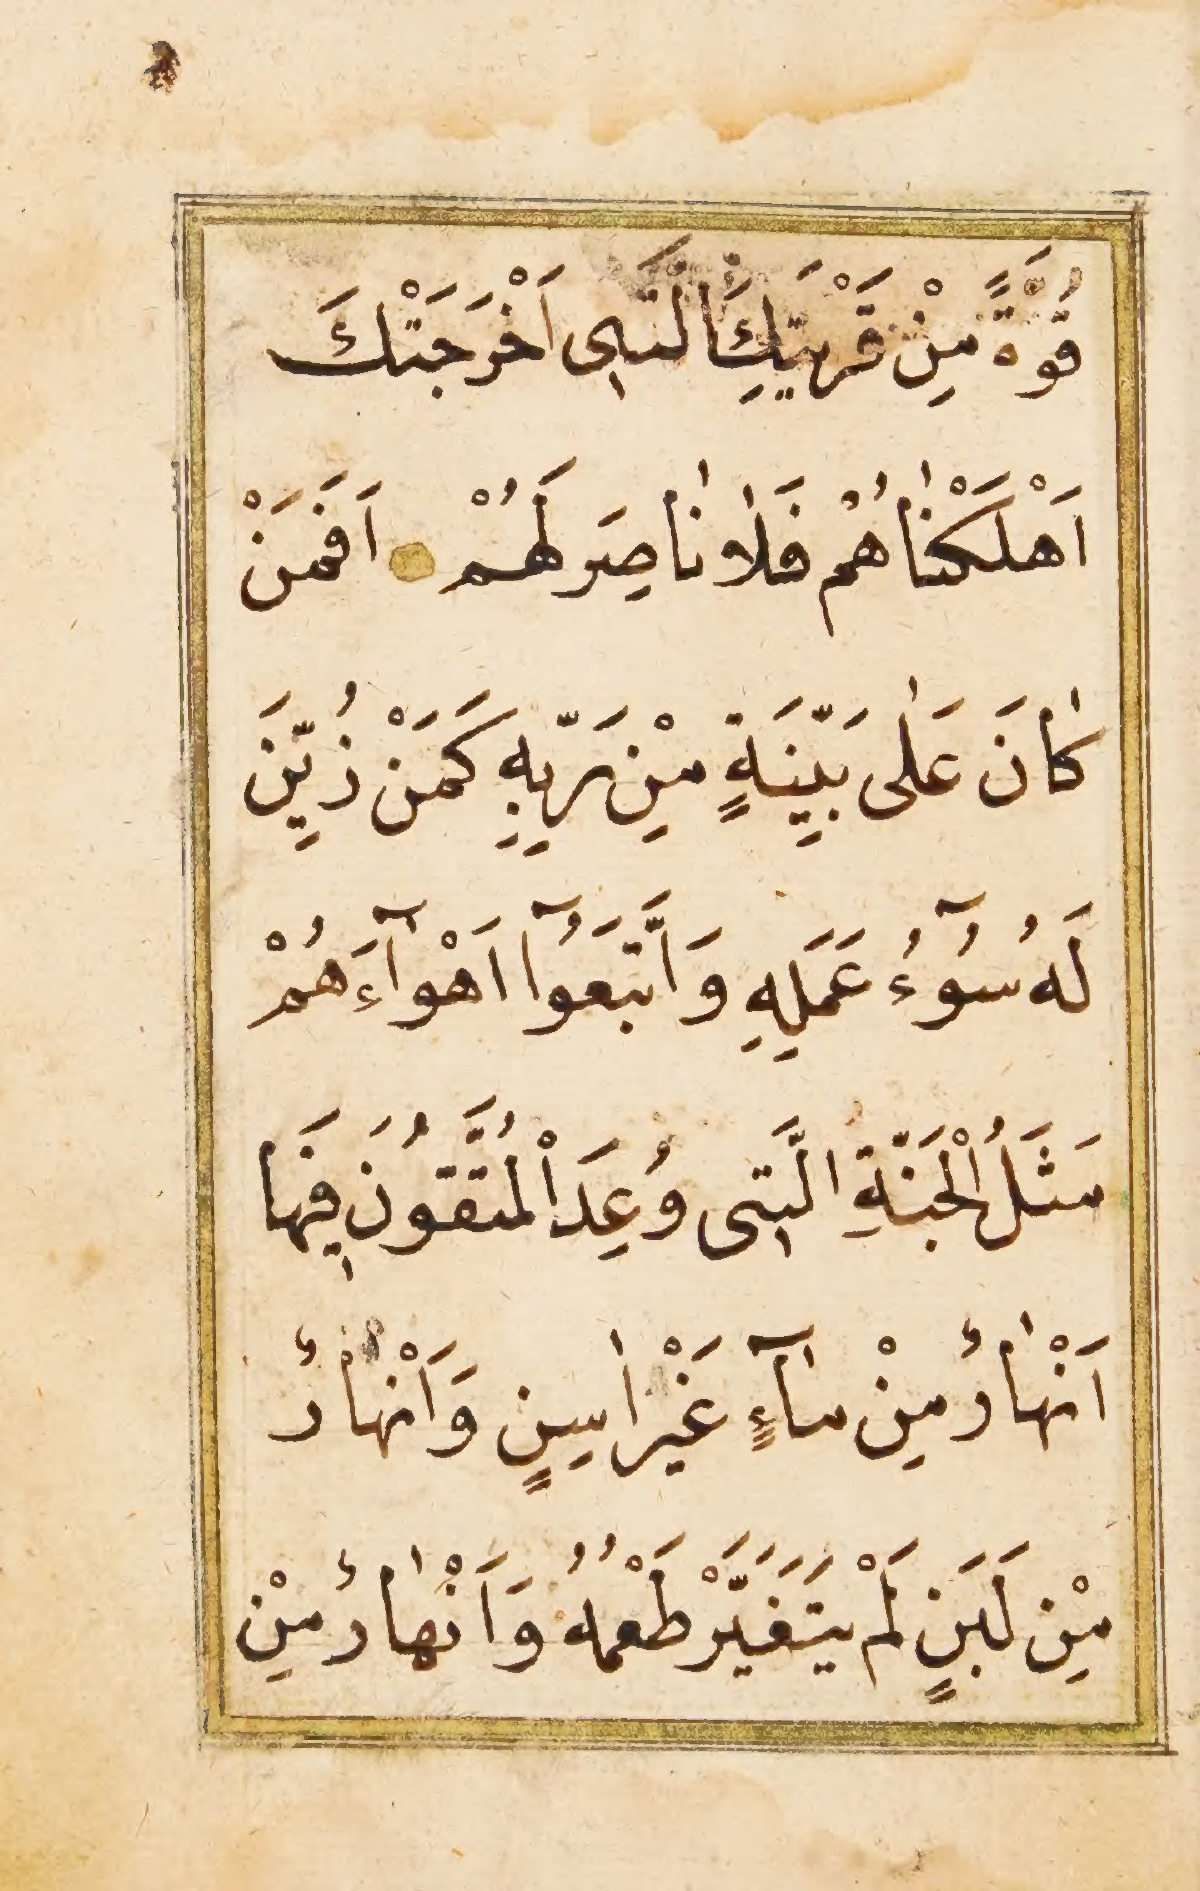 قُوَّةً مِنْ قَرْيَتِكَ الَّتٖى اَخْرَجَتْكَ
اَهْلَكْنٰاهُمْ فَلٰا نٰاصِرَ لَهُمْ اَفَمَنْ
كٰانَ عَلٰى بَيِّنَةٍ مِنْ رَبِّهِ كَمَنْ زُيِّنَ
لَهُ سُوٓءُ عَمَلِهِ وَاتَّبَعُوٓا اَهْوٰٓاءَهُمْ
مَثَلُ الْجَنَّةِ الَّتٖى وُعِدَ الْمُتَّقُونَ فٖيهَا
اَنْهٰارٌ مِنْ مٰٓاءٍ غَيْرِ اٰسِنٍ وَاَنْهٰارٌ
مِنْ لَبَنٍ لَمْ يَتَغَيَّرْ طَعْمُهُ وَاَنْهٰارٌ مِنْ